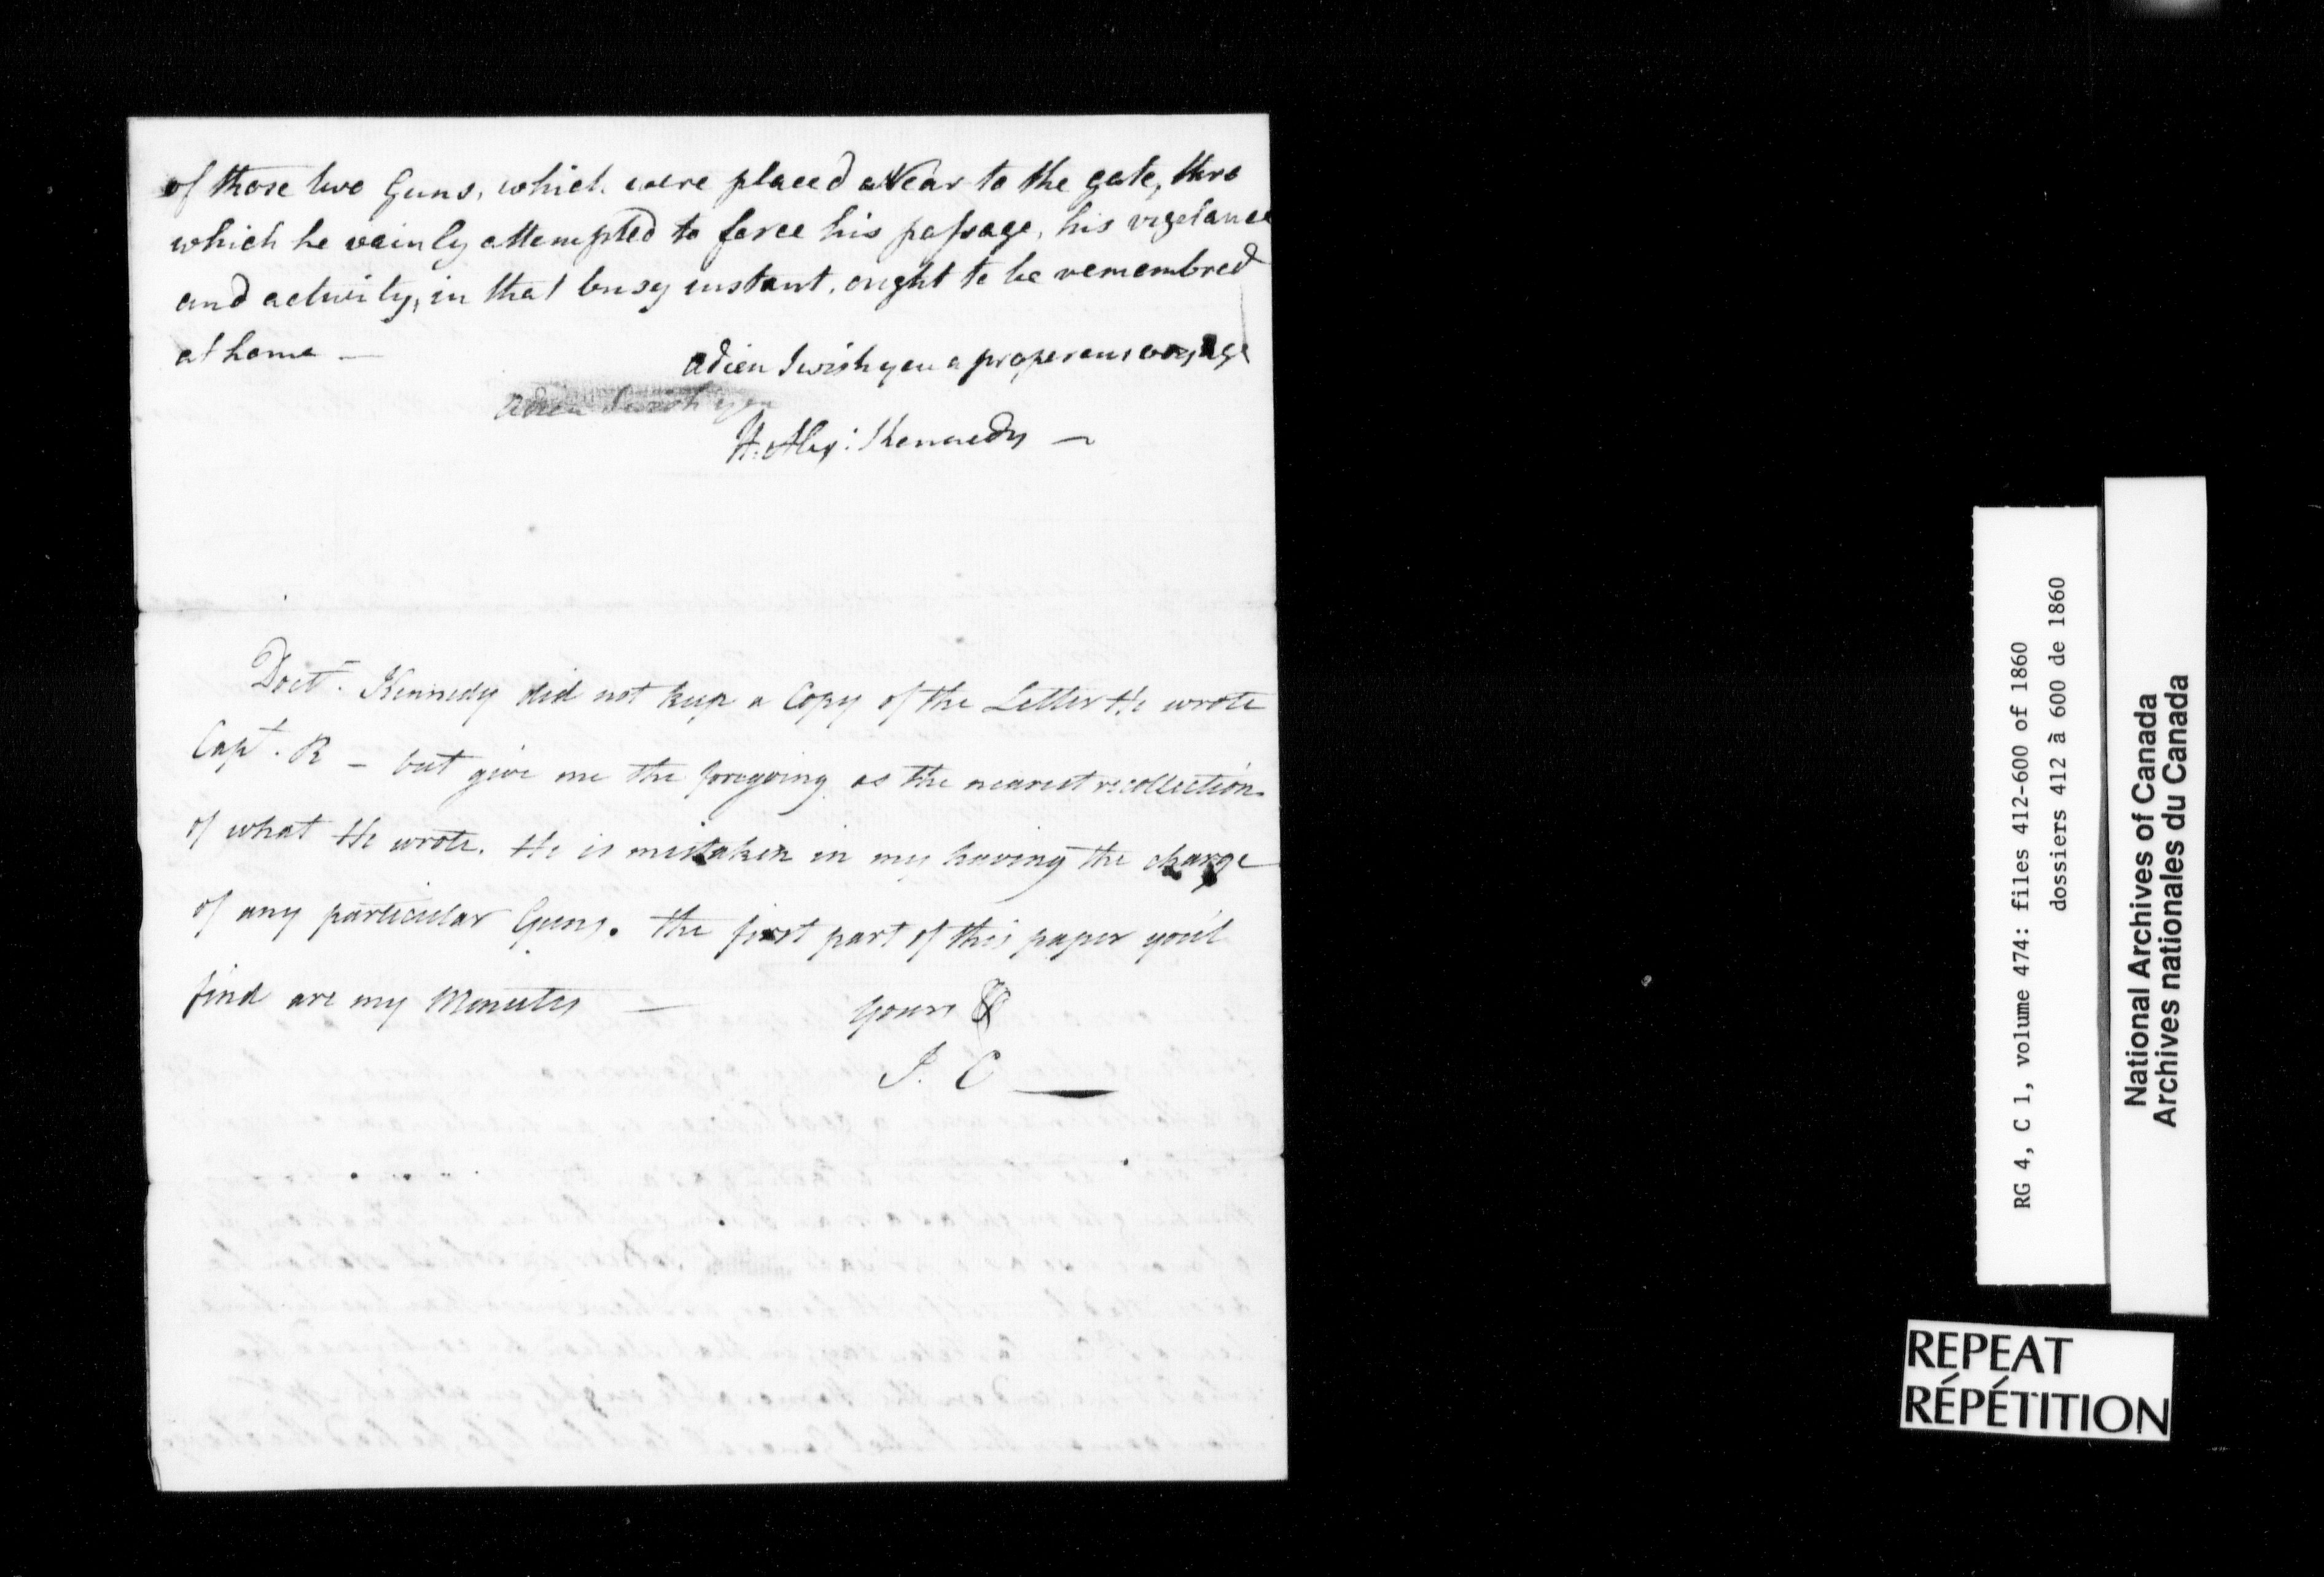 of those two Guns, which were placed Near to the gate, thro
which he vainly attempted to force his passage, his vigelance
and activity, in that busy instant, ought to be remembred
at home —
adieu I wish you a properous voyage
adieu I wish you
H. Alex: Kennedy —
Doctr. Kennedy did not keep a Copy of the Letter He wrote
Capt. R — but give me the foregoing as the nearest recollection
of what He wrote. He is mistaken in my having the charge
of any particular Guns. the first part of this paper you'l
find are my Minutes —
Yours &
J. C —
RG 4, C 1, volume 474: files 412-600 of 1860
dossiers 412 à 600 de 1860
National Archives of Canada
Archives nationales du Canada
REPEAT
RÉPÉTITION